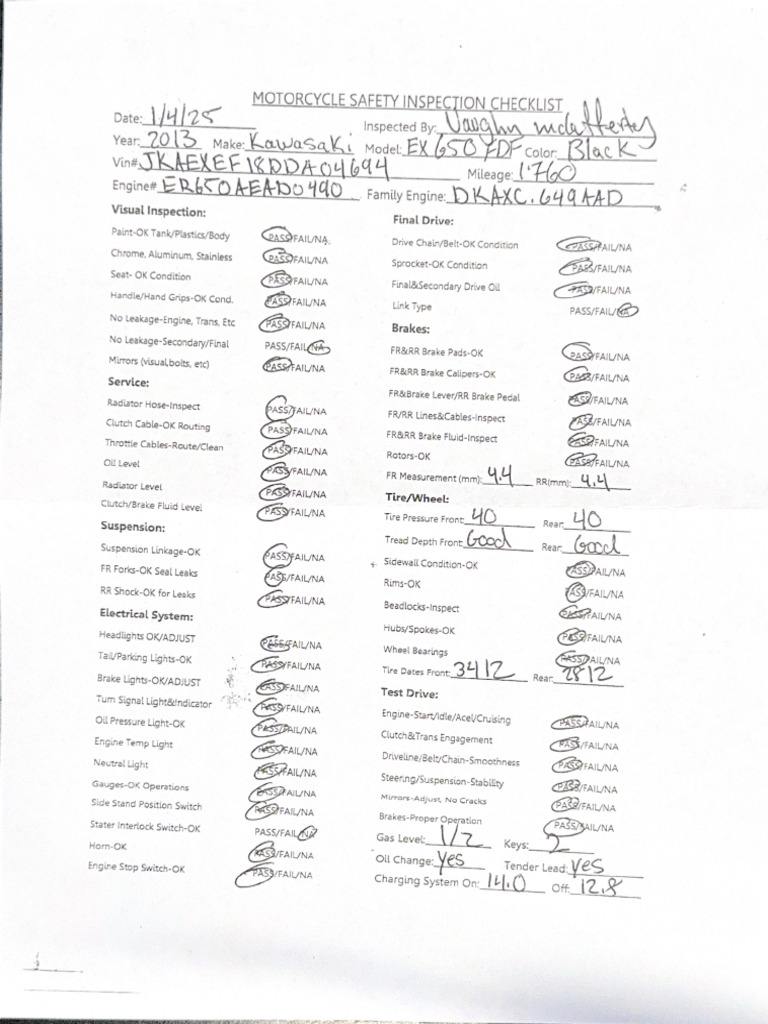 MOTORCYCLE SAFETY INSPECTION CHECKLIST
Date: 1/4/25 Inspected By: Vaughn mclafferty
Year: 2013 Make: Kawasaki Model: EX650FDF Color: Black
Vin# JKAEXEF18DDA04694 Mileage: 1760
Engine# ER650AEAD0490 Family Engine: DKAXC.649AAD
Visual Inspection:
Paint-OK Tank/Plastics/Body PASS/FAIL/NA
Chrome, Aluminum, Stainless PASS/FAIL/NA
Seat- OK Condition PASS/FAIL/NA
Handle/Hand Grips-OK Cond. PASS/FAIL/NA
No Leakage-Engine, Trans, Etc PASS/FAIL/NA
No Leakage-Secondary/Final PASS/FAIL/NA
Mirrors (visual,bolts, etc) PASS/FAIL/NA
Service:
Radiator Hose-Inspect PASS/FAIL/NA
Clutch Cable-OK Routing PASS/FAIL/NA
Throttle Cables-Route/Clean PASS/FAIL/NA
Oil Level PASS/FAIL/NA
Radiator Level PASS/FAIL/NA
Clutch/Brake Fluid Level PASS/FAIL/NA
Suspension:
Suspension Linkage-OK PASS/FAIL/NA
FR Forks-OK Seal Leaks PASS/FAIL/NA
RR Shock-OK for Leaks PASS/FAIL/NA
Electrical System:
Headlights OK/ADJUST PASS/FAIL/NA
Tail/Parking Lights-OK PASS/FAIL/NA
Brake Lights-OK/ADJUST PASS/FAIL/NA
Turn Signal Light&Indicator PASS/FAIL/NA
Oil Pressure Light-OK PASS/FAIL/NA
Engine Temp Light PASS/FAIL/NA
Neutral Light PASS/FAIL/NA
Gauges-OK Operations PASS/FAIL/NA
Side Stand Position Switch PASS/FAIL/NA
Stater Interlock Switch-OK PASS/FAIL/NA
Horn-OK PASS/FAIL/NA
Engine Stop Switch-OK PASS/FAIL/NA
Final Drive:
Drive Chain/Belt-OK Condition PASS/FAIL/NA
Sprocket-OK Condition PASS/FAIL/NA
Final&Secondary Drive Oil PASS/FAIL/NA
Link Type PASS/FAIL/NA
Brakes:
FR&RR Brake Pads-OK PASS/FAIL/NA
FR&RR Brake Calipers-OK PASS/FAIL/NA
FR&Brake Lever/RR Brake Pedal PASS/FAIL/NA
FR/RR Lines&Cables-Inspect PASS/FAIL/NA
FR&RR Brake Fluid-Inspect PASS/FAIL/NA
Rotors-OK PASS/FAIL/NA
FR Measurement (mm): 4.4 RR(mm): 4.4
Tire/Wheel:
Tire Pressure Front: 40 Rear: 40
Tread Depth Front: Good Rear: Good
Sidewall Condition-OK PASS/FAIL/NA
Rims-OK PASS/FAIL/NA
Beadlocks-Inspect PASS/FAIL/NA
Hubs/Spokes-OK PASS/FAIL/NA
Wheel Bearings PASS/FAIL/NA
Tire Dates Front: 3412 Rear: 2812
Test Drive:
Engine-Start/Idle/Acel/Cruising PASS/FAIL/NA
Clutch&Trans Engagement PASS/FAIL/NA
Driveline/Belt/Chain-Smoothness PASS/FAIL/NA
Steering/Suspension-Stability PASS/FAIL/NA
Mirrors-Adjust, No Cracks PASS/FAIL/NA
Brakes-Proper Operation PASS/FAIL/NA
Gas Level: 1/2 Keys: 2
Oil Change: yes Tender Lead: yes
Charging System On: 14.0 Off: 12.8